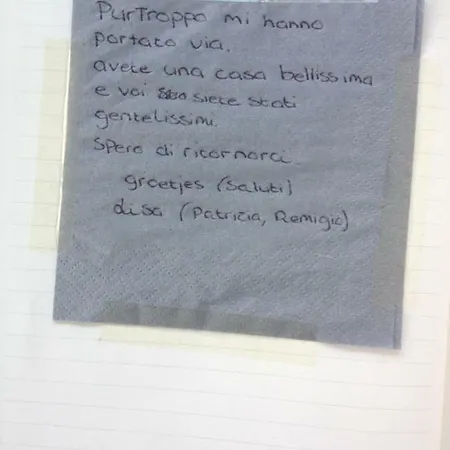 PurTroppo mi hanno
portato via.
avete una casa bellissima
e voi siete stati
gentelissimi.
Spero di ritornarci.
groetjes (Saluti)
disa (Patricia, Remigio)